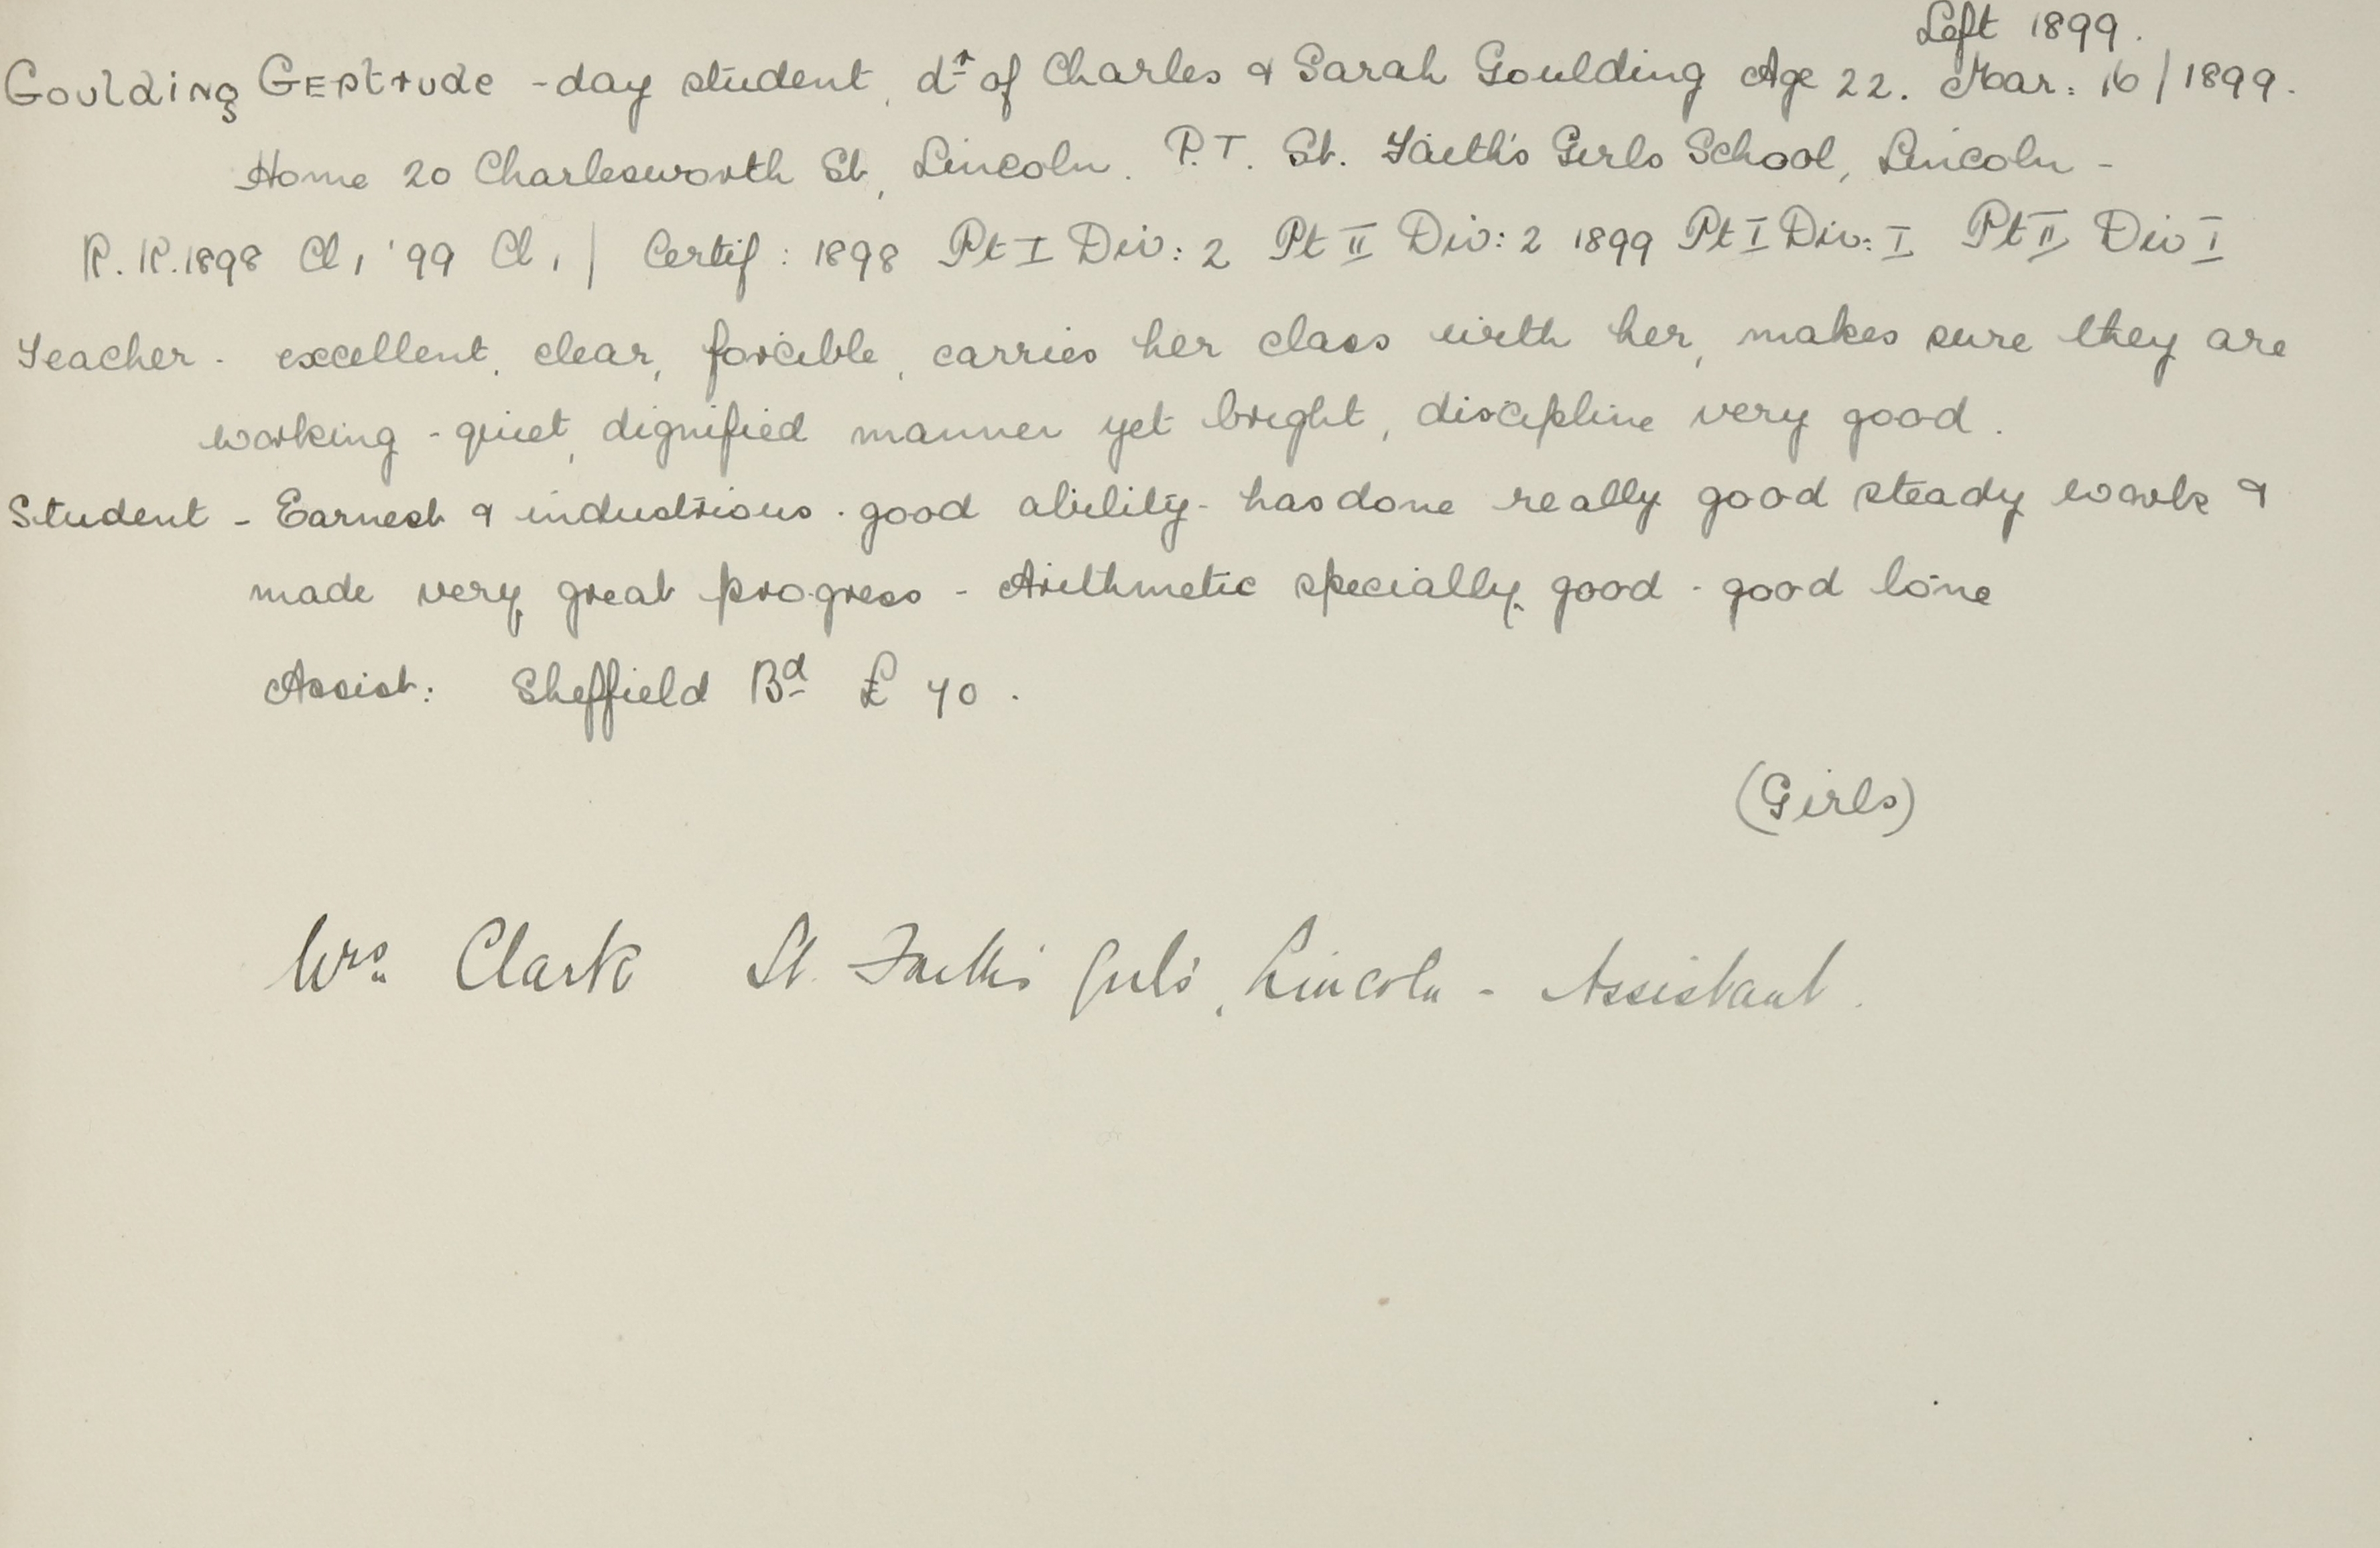 Left 1899.
Goulding Gertrude - day student, dr of Charles & Sarah Goulding Age 22. Mar: 16/1899.
Home 20 Charlesworth St, Lincoln. P.T. St. Faith's Girls School, Lincoln -
R.K. 1898 Cl 1 '99 Cl 1 | Certif: 1898 Pt I Div: 2 Pt II Div: 2 1899 Pt I Div: I Pt II Div I
Teacher - excellent, clear, forcible, carries her class with her, makes sure they are
working - quiet, dignified manner yet bright, discipline very good.
Student - Earnest & industrious - good ability - has done really good steady work &
made very great progress - Arithmetic specially good - good tone
Assist: Sheffield Bd £ 70.
(Girls)
Mrs Clark St. Faith's Girls', Lincoln - Assistant.